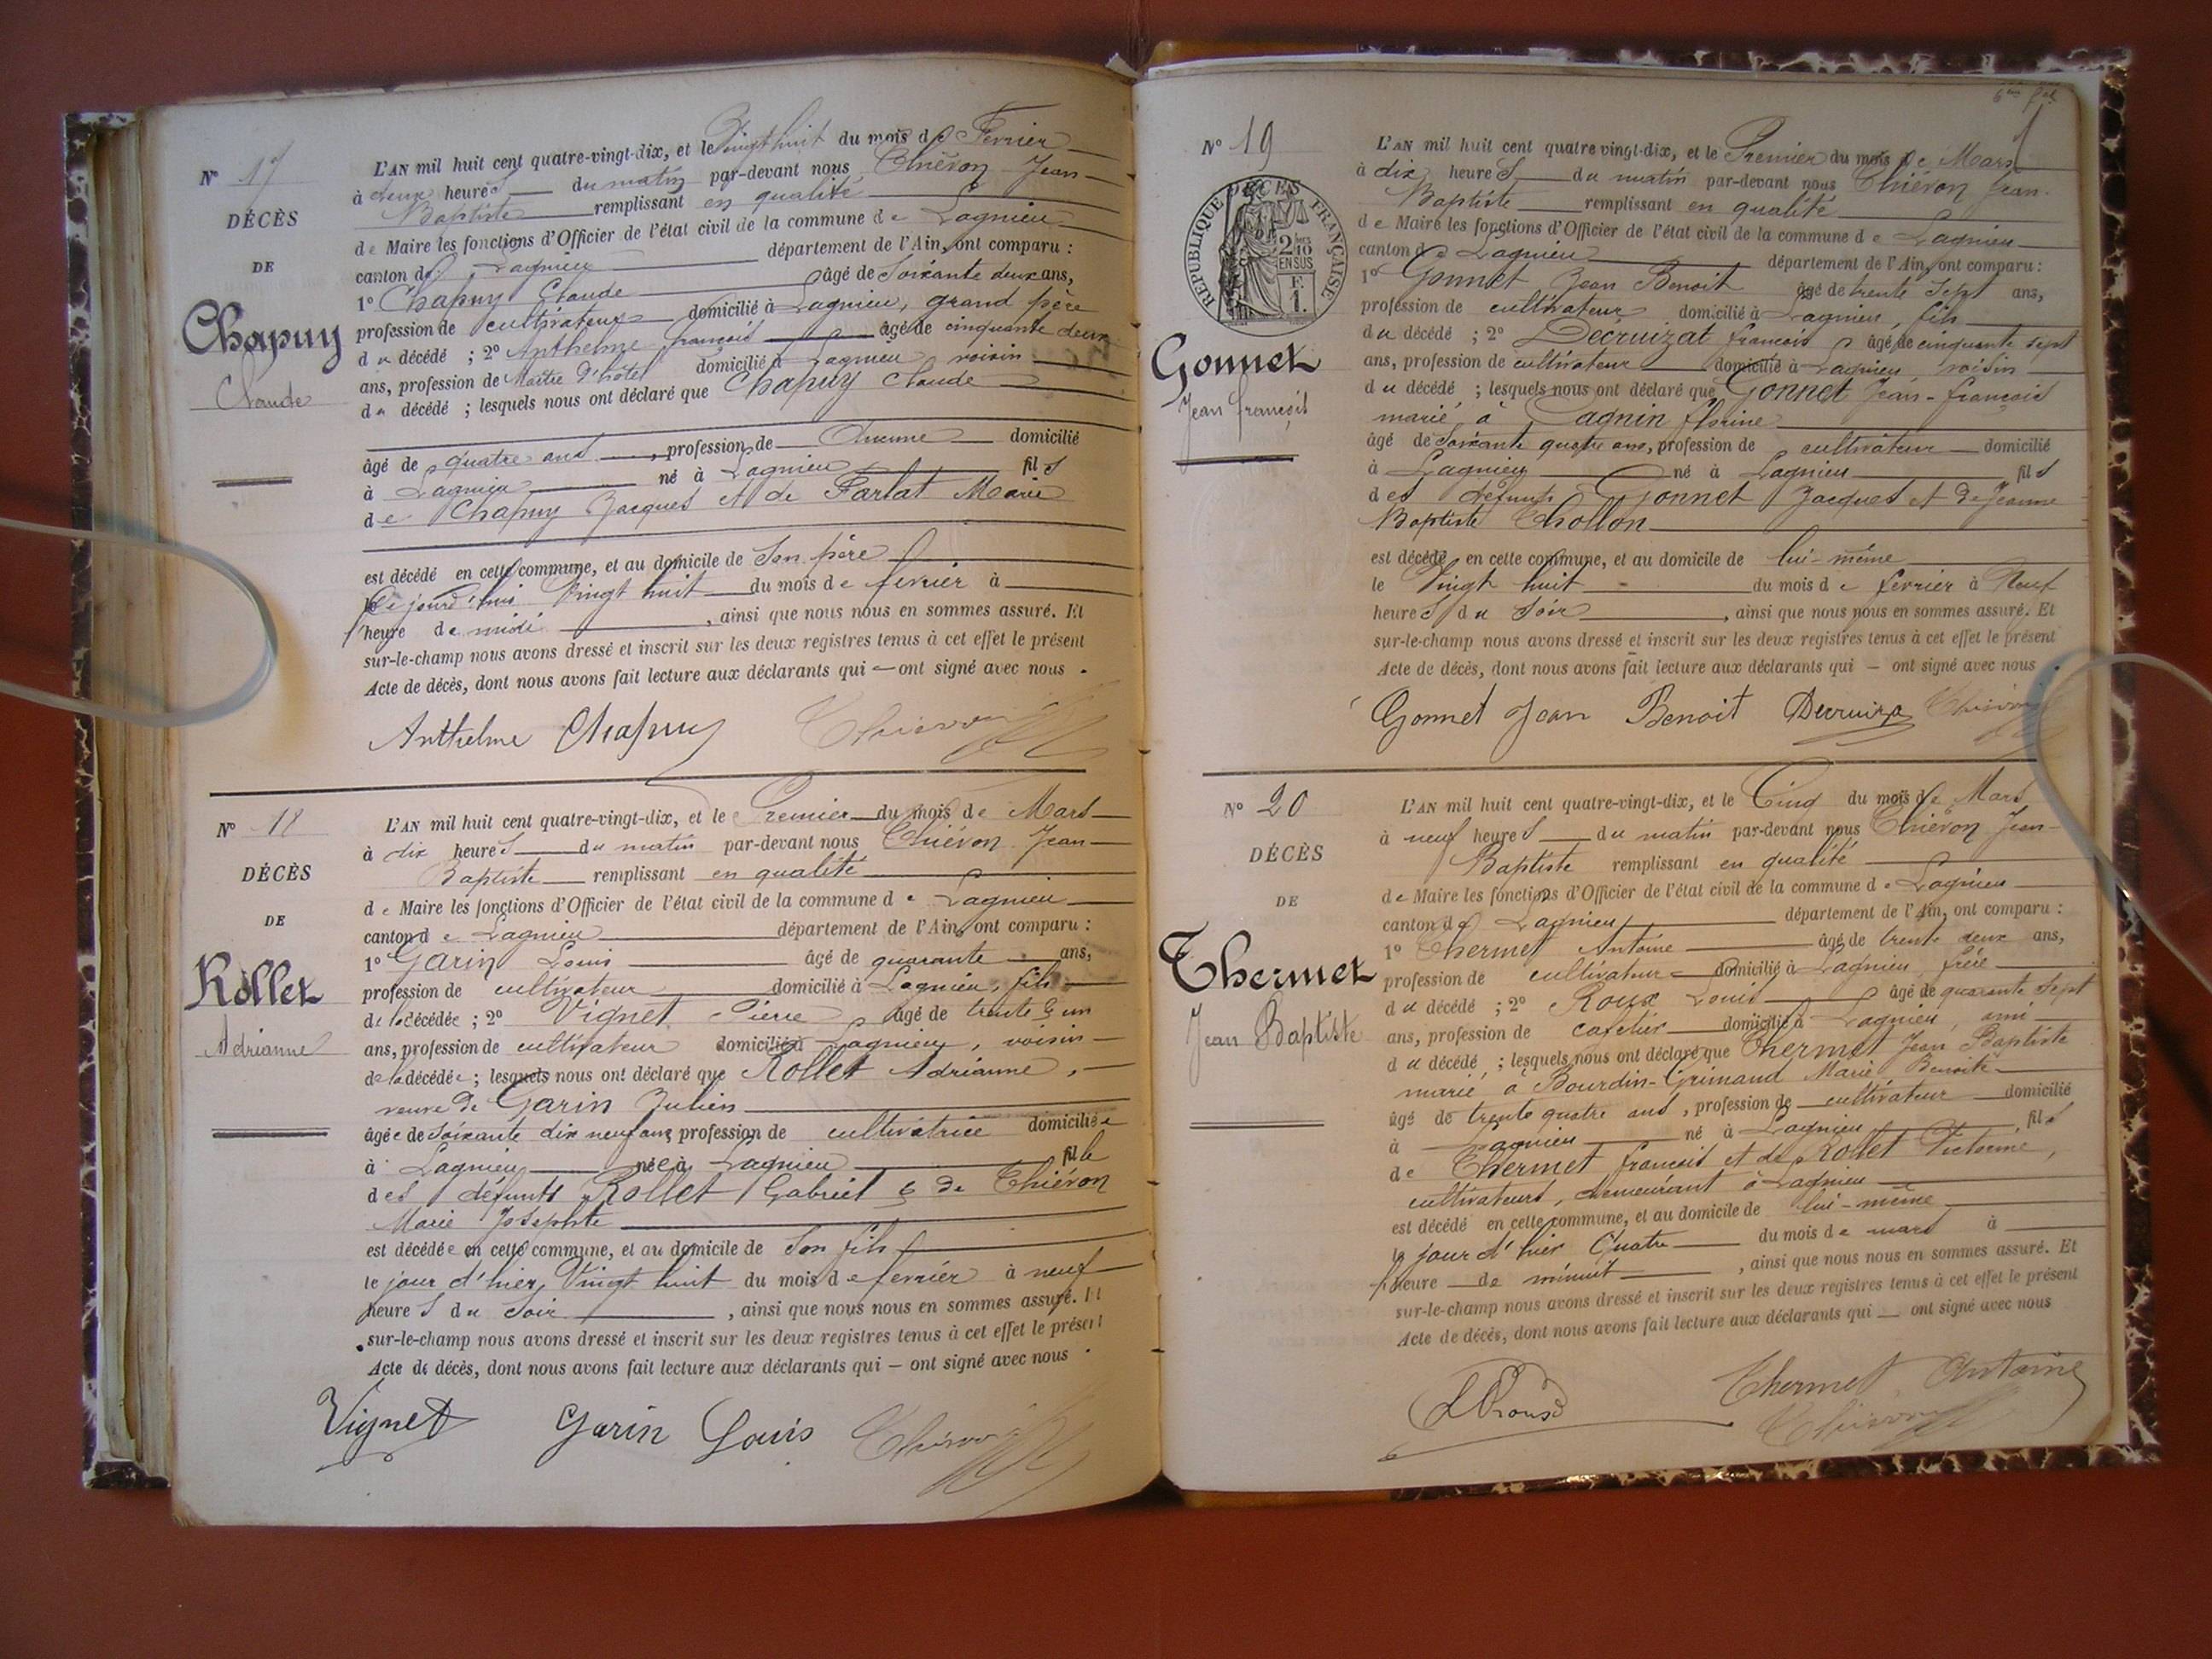 N° 17
DÉCÈS
DE
Chapuy
Claude
L'AN mil huit cent quatre-vingt-dix, et le Vingt huit du mois de Fevrier
à deux heures du matin par-devant nous Thiévon Jean-
Baptiste remplissant en qualité
de Maire les fonctions d'Officier de l'état civil de la commune de Lagnieu
canton de Lagnieu département de l'Ain, ont comparu :
1° Chapuy Claude âgé de Soixante deux ans,
profession de cultivateur domicilié à Lagnieu, grand père
du décédé ; 2° Anthelme françois âgé de cinquante deux
ans, profession de Maître d'hôtel domicilié à Lagnieu voisin
du décédé ; lesquels nous ont déclaré que Chapuy Claude
âgé de quatre ans, profession de Aucune domicilié
à Lagnieu né à Lagnieu fils
de Chapuy Jacques et de Farlat Marie
est décédé en cette commune, et au domicile de Son père
le jourd'hui Vingt huit du mois de fevrier à
heure de midi, ainsi que nous nous en sommes assuré. Et
sur-le-champ nous avons dressé et inscrit sur les deux registres tenus à cet effet le présent
Acte de décès, dont nous avons fait lecture aux déclarants qui – ont signé avec nous.
Anthelme Chapuy Thiévon
N° 18
DÉCÈS
DE
Rollet
Adrianne
L'AN mil huit cent quatre-vingt-dix, et le Premier du mois de Mars
à dix heures du matin par-devant nous Thiévon Jean-
Baptiste remplissant en qualité
de Maire les fonctions d'Officier de l'état civil de la commune de Lagnieu
canton de Lagnieu département de l'Ain, ont comparu :
1° Garin Louis âgé de quarante ans,
profession de cultivateur domicilié à Lagnieu, fils
de la décédée ; 2° Vignet Pierre âgé de trente & un
ans, profession de cultivateur domicilié à Lagnieu, voisin
de la décédée ; lesquels nous ont déclaré que Rollet Adrianne,
veuve de Garin Julien
âgée de Soixante dix neuf ans, profession de cultivatrice domiciliée
à Lagnieu née à Lagnieu fille
des défunts Rollet Gabriel & de Thiévon
Marie Josephte
est décédée en cette commune, et au domicile de Son fils
le jour d'hier, Vingt huit du mois de fevrier à neuf
heures du Soir, ainsi que nous nous en sommes assuré. Et
sur-le-champ nous avons dressé et inscrit sur les deux registres tenus à cet effet le présent
Acte de décès, dont nous avons fait lecture aux déclarants qui – ont signé avec nous.
Vignet Garin Louis Thiévon
N° 19
RÉPUBLIQUE FRANÇAISE
DÉCÈS
2/10 EN SUS
F. 1.
Gonnet
Jean françois
L'AN mil huit cent quatre vingt-dix, et le Premier du mois de Mars
à dix heures du matin par-devant nous Thiévon Jean-
Baptiste remplissant en qualité
de Maire les fonctions d'Officier de l'état civil de la commune de Lagnieu
canton de Lagnieu département de l'Ain, ont comparu :
1° Gonnet Jean Benoit âgé de trente sept ans,
profession de cultivateur domicilié à Lagnieu, fils
du décédé ; 2° Decruizat françois âgé de cinquante sept
ans, profession de cultivateur domicilié à Lagnieu voisin
du décédé ; lesquels nous ont déclaré que Gonnet Jean-françois
marié à Cagnin florine
âgé de Soixante quatre ans, profession de cultivateur domicilié
à Lagnieu né à Lagnieu fils
des défunts Gonnet Jacques et de Jeanne
Baptiste Chollon
est décédé en cette commune, et au domicile de lui-même
le Vingt huit du mois de fevrier à Neuf
heures du Soir, ainsi que nous nous en sommes assuré. Et
sur-le-champ nous avons dressé et inscrit sur les deux registres tenus à cet effet le présent
Acte de décès, dont nous avons fait lecture aux déclarants qui – ont signé avec nous.
Gonnet Jean Benoit Decruiza Thiévon
N° 20
DÉCÈS
DE
Thermet
Jean Baptiste
L'AN mil huit cent quatre-vingt-dix, et le Cinq du mois de Mars
à neuf heures du matin par-devant nous Thiévon Jean-
Baptiste remplissant en qualité
de Maire les fonctions d'Officier de l'état civil de la commune de Lagnieu
canton de Lagnieu département de l'Ain, ont comparu :
1° Thermet Antoine âgé de trente deux ans,
profession de cultivateur domicilié à Lagnieu frère
du décédé ; 2° Roux Louis âgé de quarante sept
ans, profession de cafetier domicilié à Lagnieu, ami
du décédé ; lesquels nous ont déclaré que Thermet Jean Baptiste
marié à Bourdin-Grimaud Marie Benoite
âgé de trente quatre ans, profession de cultivateur domicilié
à Lagnieu né à Lagnieu, fils
de Thermet françois et de Rollet Victorine,
cultivateurs, demeurant à Lagnieu
est décédé en cette commune, et au domicile de lui-même
le jour d'hier Quatre du mois de mars à
heure de minuit, ainsi que nous nous en sommes assuré. Et
sur-le-champ nous avons dressé et inscrit sur les deux registres tenus à cet effet le présent
Acte de décès, dont nous avons fait lecture aux déclarants qui – ont signé avec nous
L Roux Thermet Antoine
Thiévon